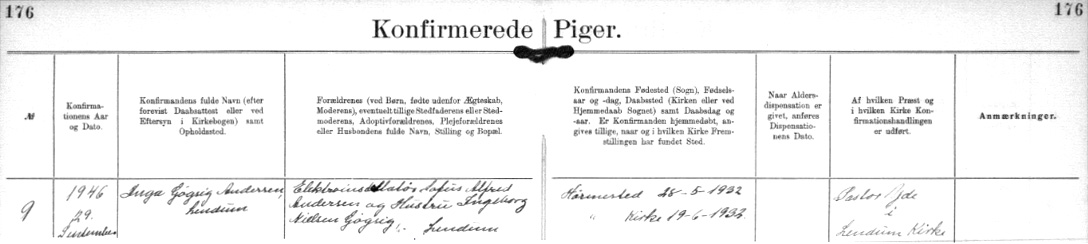 176
176
Konfirmerede Piger.
№
Konfirma-
tionens Aar
og Dato.
Konfirmandens fulde Navn (efter
forevist Daabsattest eller ved
Eftersyn i Kirkebogen) samt
Opholdssted.
Forældrenes (ved Børn, fødte udenfor Ægteskab,
Moderens), eventuelt tillige Stedfaderens eller Sted-
moderens, Adoptivforældrenes, Plejeforældrenes
eller Husbondens fulde Navn, Stilling og Bopæl.
Konfirmandens Fødested (Sogn), Fødsels-
aar og -dag, Daabssted (Kirken eller ved
Hjemmedaab Sognet) samt Daabsdag og
-aar. Er Konfirmanden hjemmedøbt, an-
gives tillige, naar og i hvilken Kirke Frem-
stillingen har fundet Sted.
Naar Alders-
dispensation er
givet, anføres
Dispensatio-
nens Dato.
Af hvilken Præst og
i hvilken Kirke Kon-
firmationshandlingen
er udført.
Anmærkninger.
9
1946
29.
September
Inga Gøgsig Andersen,
Lendum
Elektroinstallatør Sofus Alfred
Andersen og Hustru Ingeborg
Nielsen Gøgsig, Lendum
Hørmested 28-5-1932
" Kirke 19-6-1932
Pastor Yde
i
Lendum Kirke